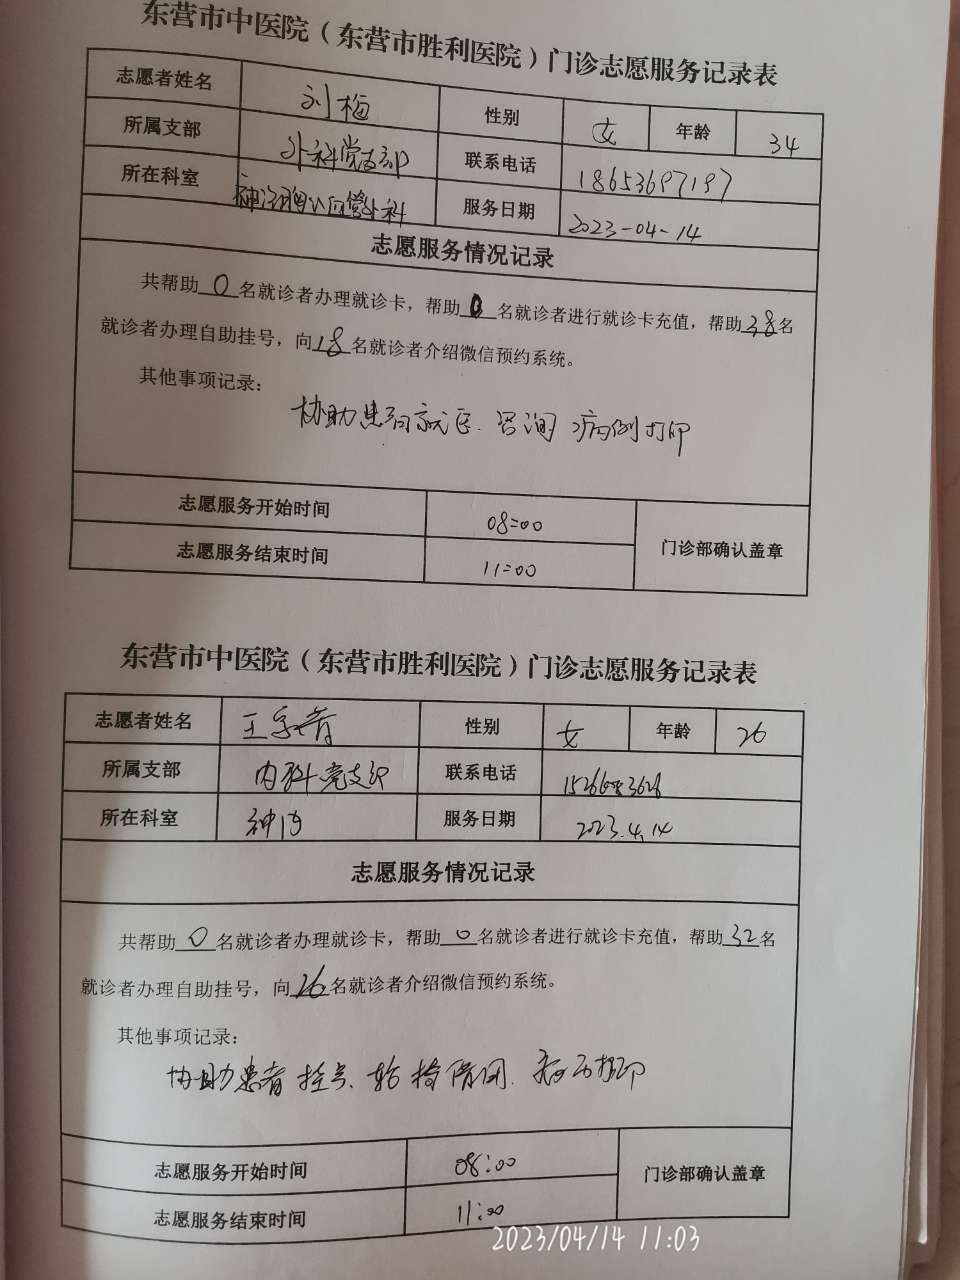 东营市中医院（东营市胜利医院）门诊志愿服务记录表
志愿者姓名 刘梅 性别 女 年龄 34
所属支部 外科党支部 联系电话 18653697197
所在科室 血管外科 服务日期 2023-04-14
志愿服务情况记录
共帮助0名就诊者办理就诊卡，帮助0名就诊者进行就诊卡充值，帮助38名
就诊者办理自助挂号，向18名就诊者介绍微信预约系统。
其他事项记录：
协助患者就医、咨询、病例打印
志愿服务开始时间 08:00
门诊部确认盖章
志愿服务结束时间 11:00
东营市中医院（东营市胜利医院）门诊志愿服务记录表
志愿者姓名 王 性别 女 年龄 26
所属支部 内科党支部 联系电话
所在科室 神内 服务日期 2023.4.14
志愿服务情况记录
共帮助0名就诊者办理就诊卡，帮助0名就诊者进行就诊卡充值，帮助32名
就诊者办理自助挂号，向26名就诊者介绍微信预约系统。
其他事项记录：
协助患者挂号、轮椅借用、打印
志愿服务开始时间 08:00
门诊部确认盖章
志愿服务结束时间 11:00
2023/04/14 11:03